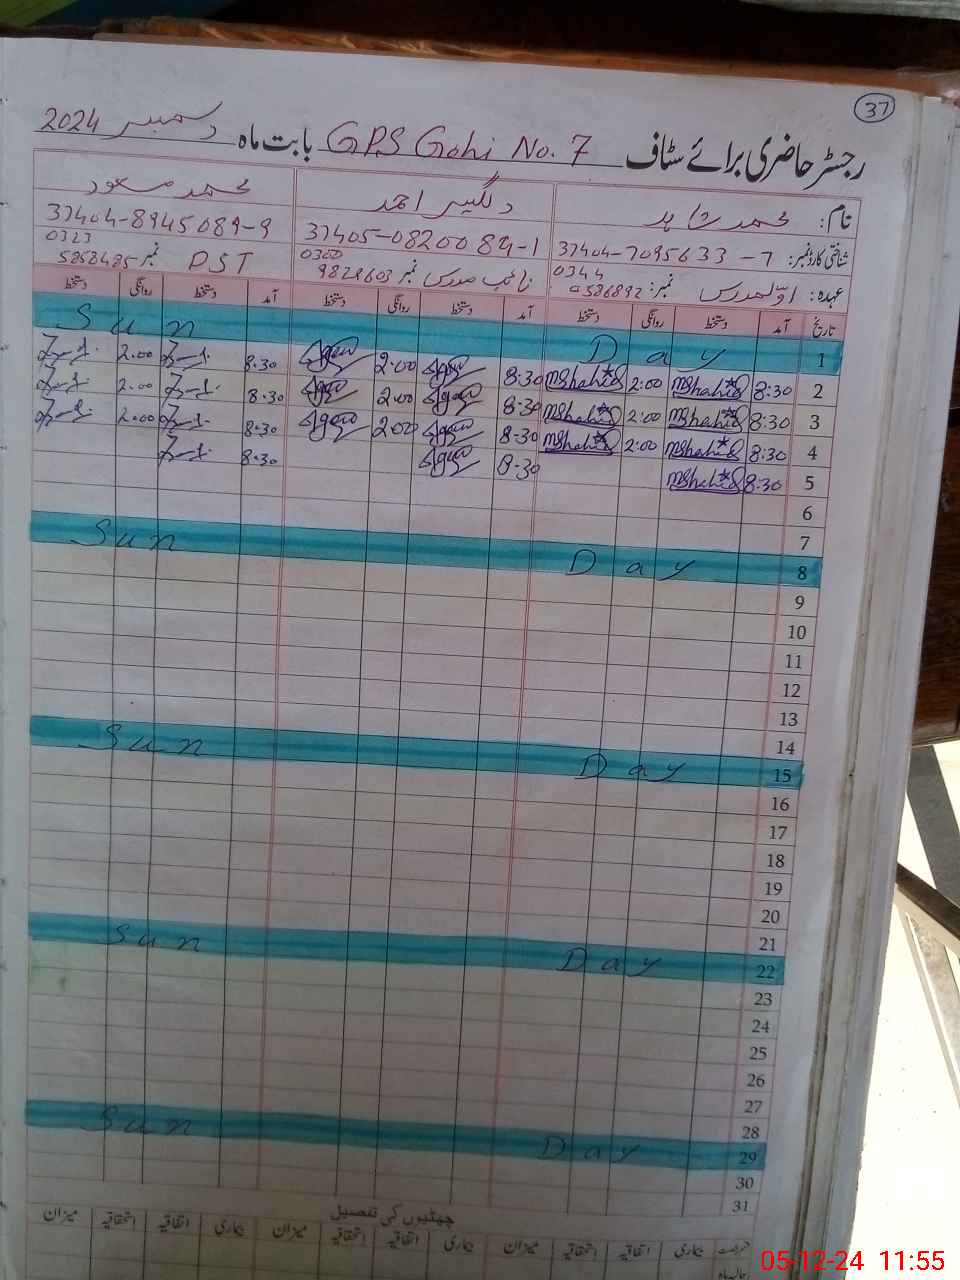 37
رجسٹر حاضری برائے سٹاف GPS Gohi No. 7 بابت ماہ دسمبر 2024
نام: محمد شاہد دلگیر احمد محمد مسعود
شناختی کارڈ نمبر: 37404-7095633-7 37405-0820084-1 37404-8945089-9
عہدہ: اول مدرس نمبر: 0344 نائب مدرس نمبر 0300 9828603 PST نمبر 0323
تاریخ آمد دستخط روانگی دستخط آمد دستخط روانگی دستخط آمد دستخط روانگی دستخط
1 Sun Day
2 8:30 MShahid 2:00 MShahid 8:30 2:00 8:30 2:00
3 8:30 MShahid 2:00 MShahid 8:30 2:00 8:30 2:00
4 8:30 MShahid 2:00 MShahid 8:30 2:00 8:30 2:00
5 8:30 MShahid 8:30 8:30
6
7
8 Sun Day
9
10
11
12
13
14
15 Sun Day
16
17
18
19
20
21
22 Sun Day
23
24
25
26
27
28
29 Sun Day
30
31
چھٹیوں کی تفصیل
بیماری اتفاقیہ استحقاقیہ میزان بیماری اتفاقیہ استحقاقیہ میزان بیماری اتفاقیہ استحقاقیہ میزان
05-12-24 11:55